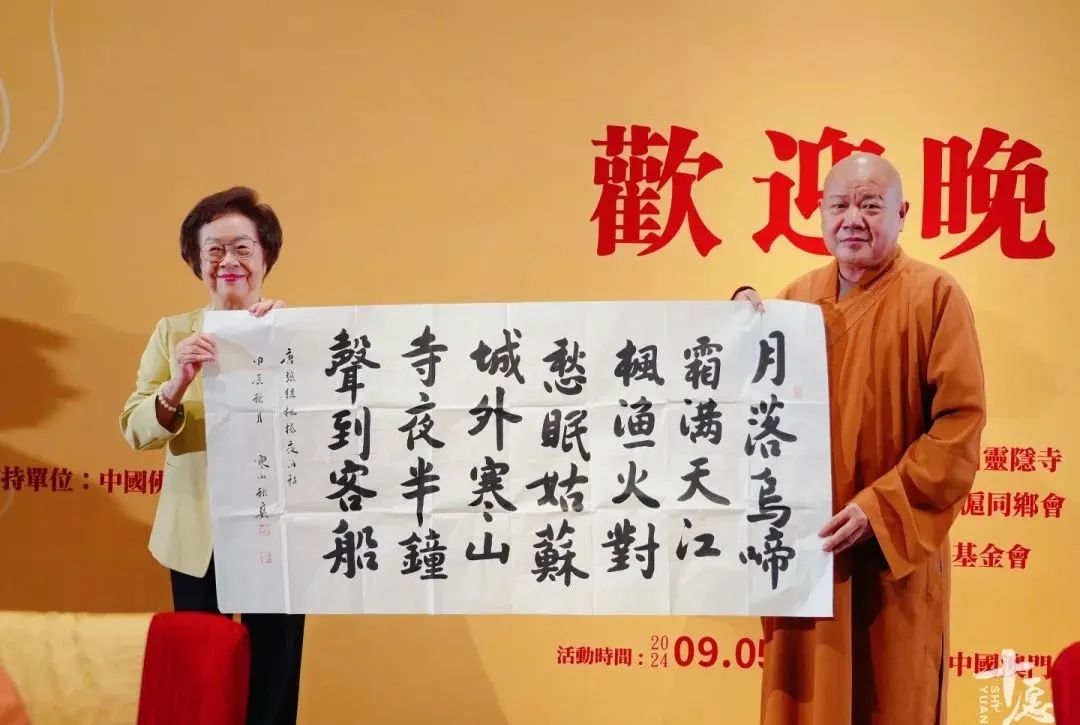 歡迎晚
月落烏啼
霜满天江
楓渔火對
愁眠姑蘇
城外寒山
寺夜半鐘
聲到客船
唐張繼楓橋夜泊詩
甲辰秋月 寒山秋爽
持單位：中國佛
靈隱寺
滬同鄉會
基金會
活動時間：2024 09.05
中國澳門
十愿
YUAN